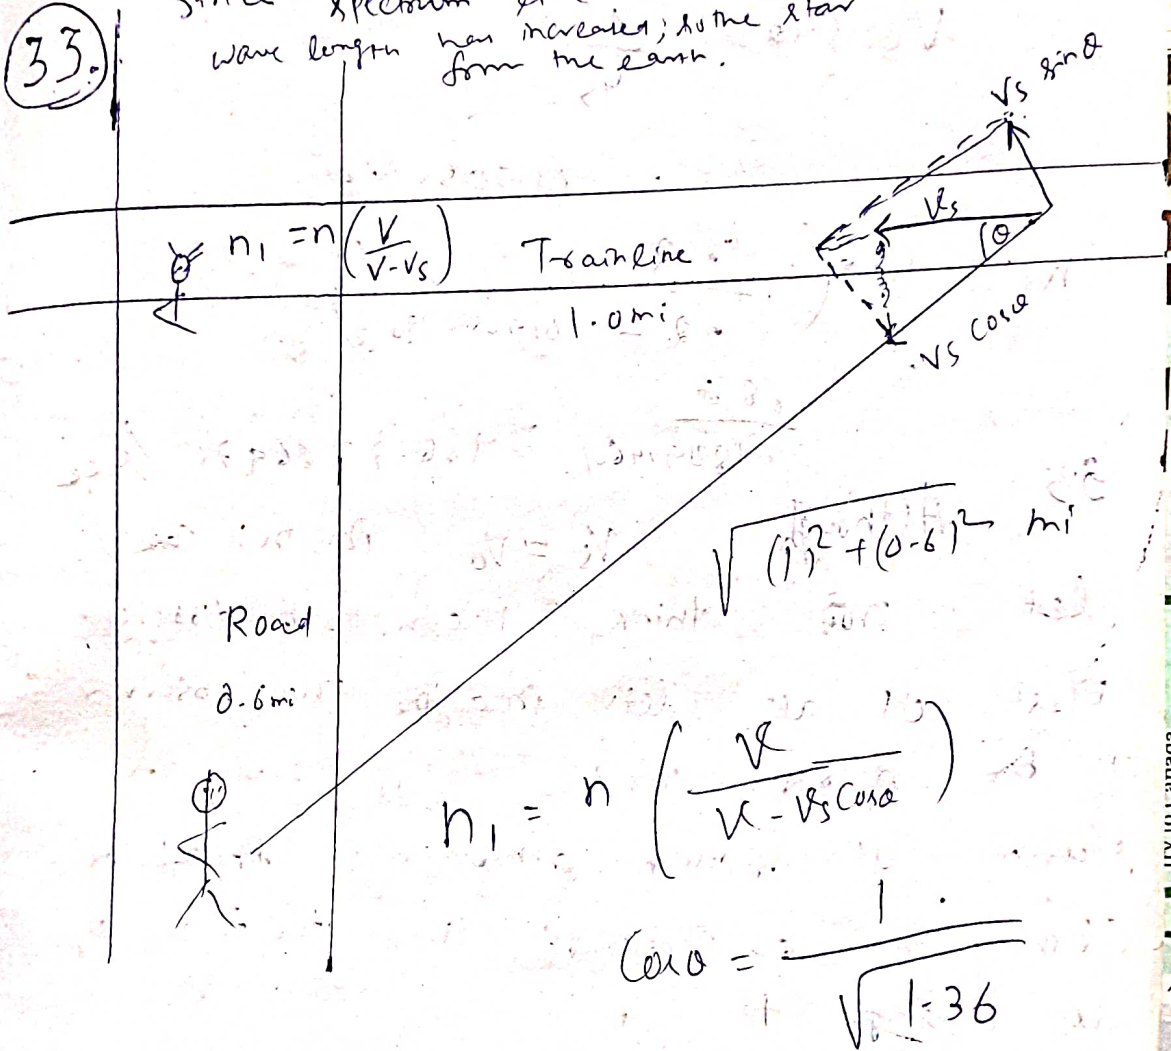 33.
wave length has increased; so the star
from the earth.
vs sinθ
vs
θ
n₁ = n (V / V-Vs)
Trainline
1.0 mi
vs cosθ
√(1)² + (0.6)² mi
Road
0.6 mi
n₁ = n (V / V - Vs Cosθ)
Cosθ = 1 / √1.36